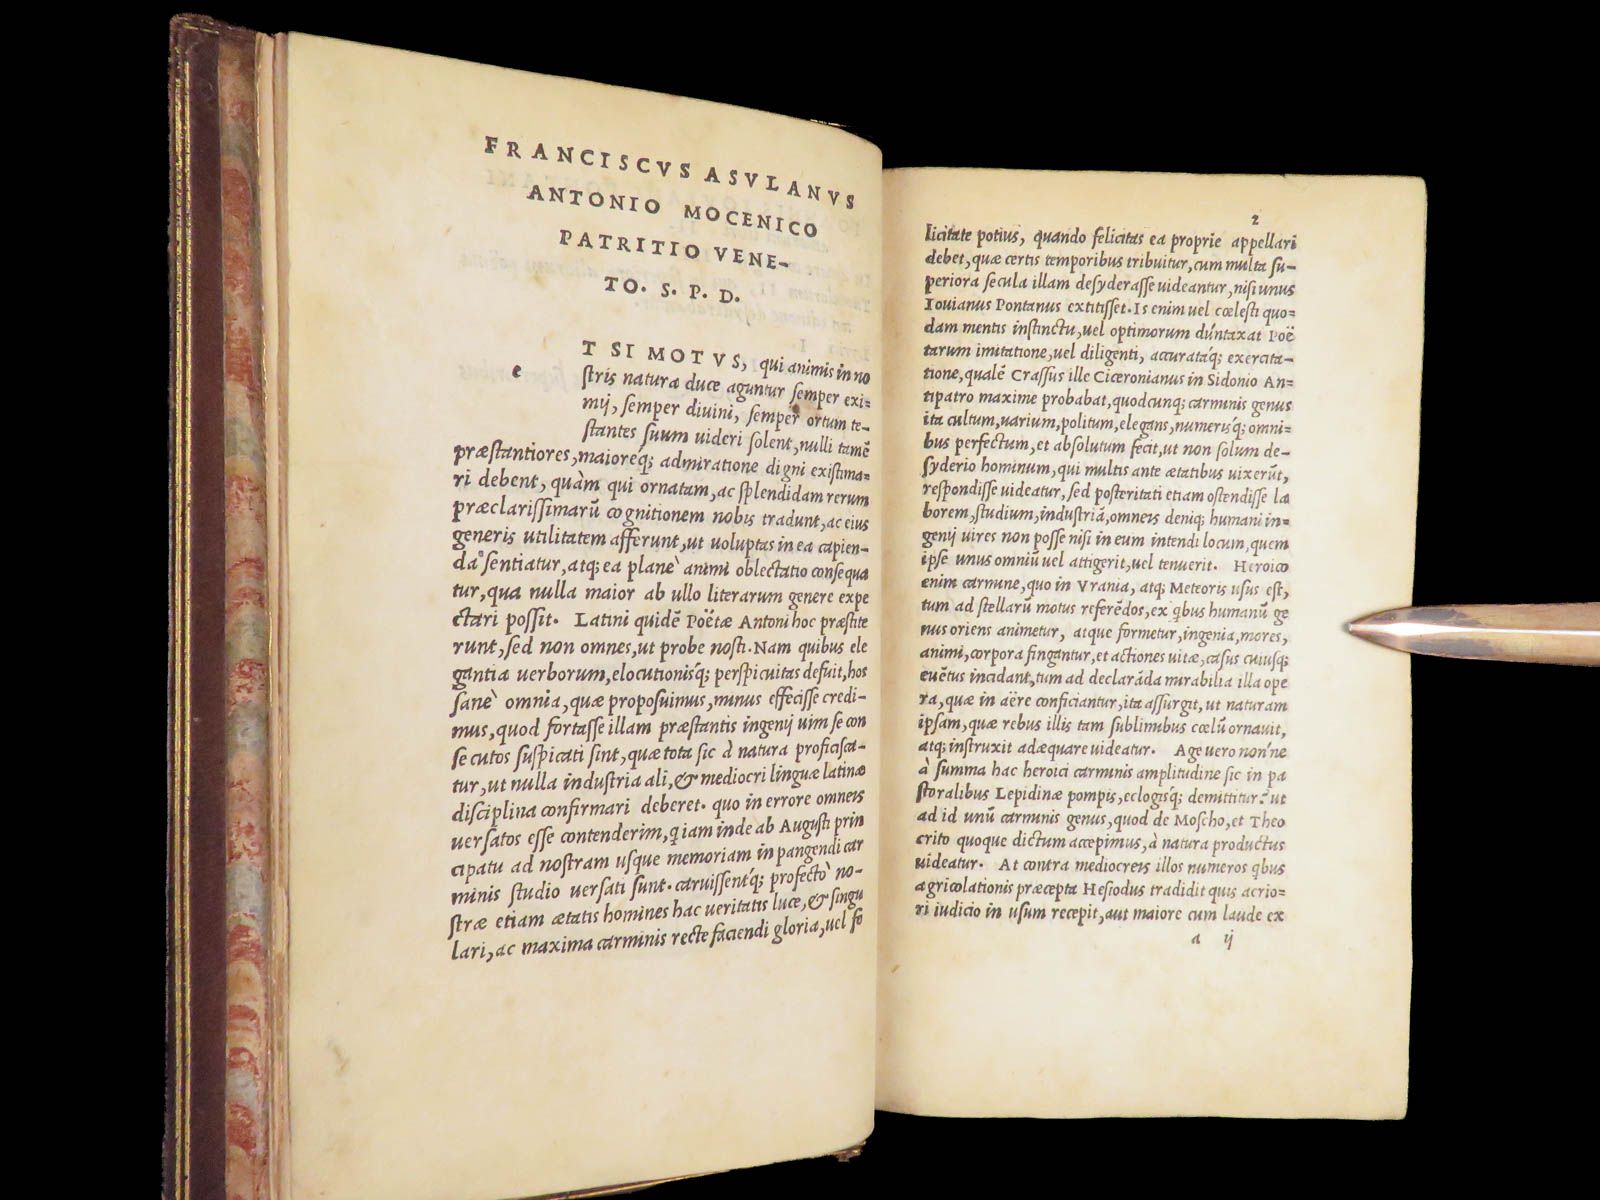 FRANCISCVS ASVLANVS
ANTONIO MOCENICO
PATRITIO VENE-
TO. S. P. D.
e
T SI MOTVS, qui animis in no
ſtris naturæ duce aguntur ſemper exi=
mij, ſemper diuini, ſemper ortum te-
ſtantes ſuum uideri ſolent, nulli tamē
præſtantiores, maioreq́; admiratione digni exiſtima-
ri debent, quàm qui ornatam, ac ſplendidam rerum
præclariſſimarū cognitionem nobis tradunt, ac eius
generis utilitatem afferunt, ut uoluptas in ea capien-
da ſentiatur, atq; ea planè animi oblectatio conſequa
tur, qua nulla maior ab ullo literarum genere expe
ctari poſſit. Latini quidē Poëtæ Antoni hoc præſtite
runt, ſed non omnes, ut probe noſti. Nam quibus ele
gantia uerborum, elocutionisq́; perſpicuitas defuit, hos
ſanè omnia, quæ propoſuimus, minus effeciſſe credi-
mus, quod fortaſſe illam præſtantis ingenij uim ſe con
ſecutos ſuſpicati ſint, quæ tota ſic à natura proficiſca-
tur, ut nulla induſtria ali, & mediocri linguæ latinæ
diſciplina confirmari deberet. quo in errore omneis
uerſatos eſſe contenderim, q̇ iam inde ab Auguſti prin
cipatu ad noſtram uſque memoriam in pangendi car
minis ſtudio uerſati ſunt. caruiſſentq́; profectò no-
ſtræ etiam ætatis homines hac ueritatis luce, & ſingu
lari, ac maxima carminis recte faciendi gloria, uel fo
2
licitate potius, quando felicitas ea proprie appellari
debet, quæ certis temporibus tribuitur, cum multa ſu-
periora ſecula illam deſyderaſſe uideantur, niſi unus
Iouianus Pontanus extitiſſet. Is enim uel cœleſti quo=
dam mentis inſtinctu, uel optimorum dūntaxat Poë
tarum imitatione, uel diligenti, accurataq́; exercita-
tione, qualē Craſſus ille Ciceronianus in Sidonio An=
tipatro maxime probabat, quodcunq; carminis genus
ita cultum, uarium, politum, elegans, numerisq́; omni=
bus perfectum, et abſolutum fecit, ut non ſolum de-
ſyderio hominum, qui multis ante ætatibus uixerūt,
reſpondiſſe uideatur, ſed poſteritati etiam oſtendiſſe la
borem, ſtudium, induſtriā, omneis deniq; humani in=
genij uires non poſſe niſi in eum intendi locum, quem
ipſe unus omniū uel attigerit, uel tenuerit. Heroico
enim carmine, quo in Vrania, atq; Meteoris uſus eſt,
tum ad ſtellarū motus referēdos, ex q̇bus humanū ge
nus oriens animetur, atque formetur, ingenia, mores,
animi, corpora fingantur, et actiones uitæ, caſus cuiuſq;
euētus incidant, tum ad declarāda mirabilia illa ope
ra, quæ in aëre conficiantur, ita aſſurgit, ut naturam
ipſam, quæ rebus illis tam ſublimibus cœlū ornauit,
atq; inſtruxit adæquare uideatur. Age uero nonne
à ſumma hac heroici carminis amplitudine ſic in pa
ſtoralibus Lepidinæ pompis, eclogisq́; demittitur? ut
ad id unū carminis genus, quod de Moſcho, et Theo
crito quoque dictum accepimus, à natura productus
uideatur. At contra mediocreis illos numeros q̇bus
agricolationis præcepta Heſiodus tradidit quis acrio=
ri iudicio in uſum recepit, aut maiore cum laude ex
a ij